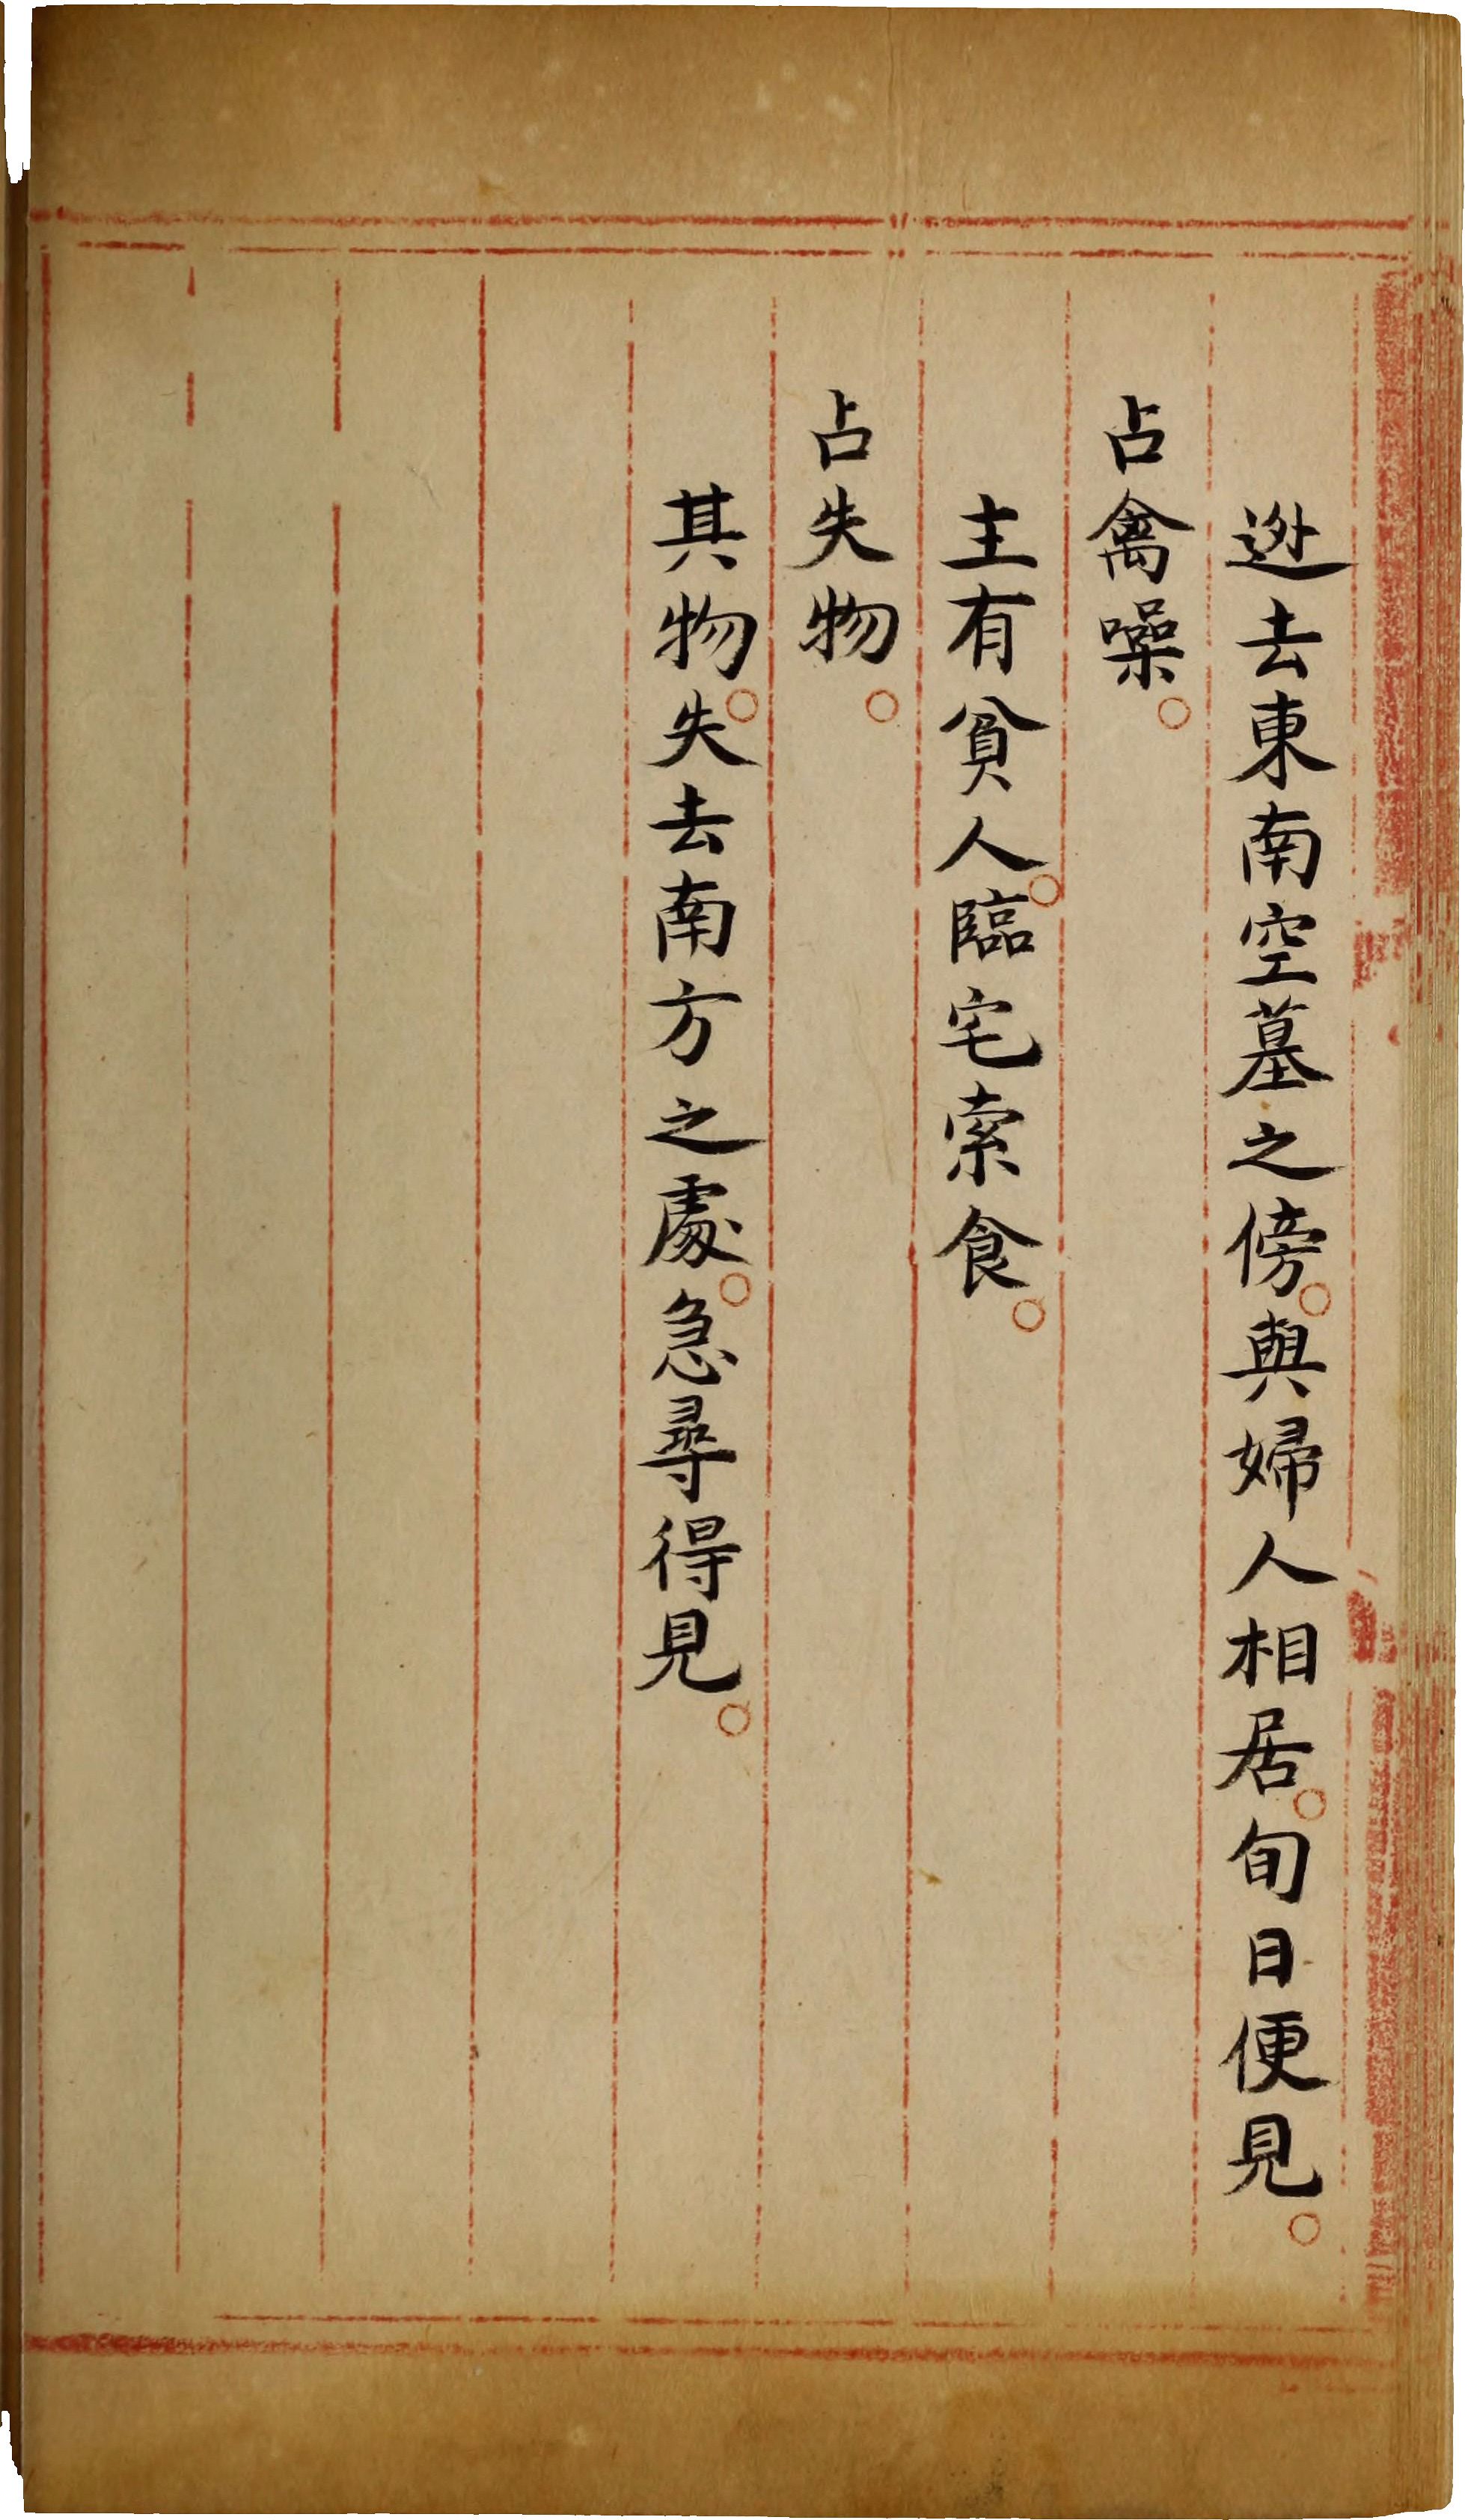 迯去東南空墓之傍。與婦人相居。旬日便見。
占禽噪。
主有貧人。臨宅索食。
占失物。
其物。失去南方之處。急尋得見。